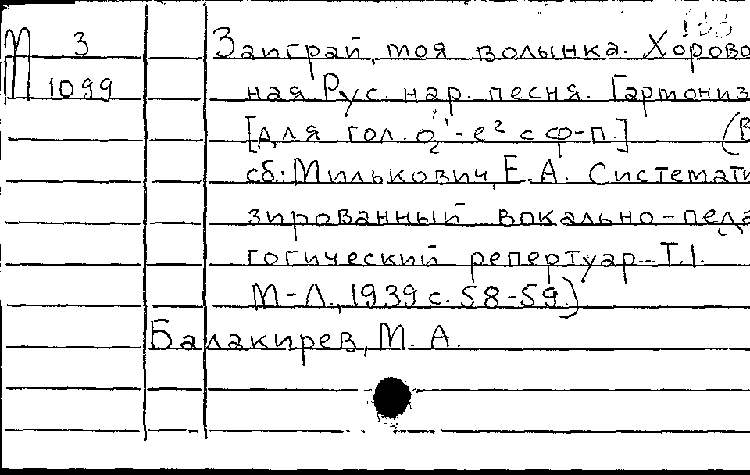 133
М 3 Заиграй, моя волынка. Хорово
1099 ная Рус. нар. песня. Гармониз
[для гол. g¹-e² с ф-п.] (В
сб: Милькович, Е.А. Системати
зированный вокально-педа
гогический репертуар-Т.1.
М-Л., 1939 с. 58-59.)
Балакирев, М. А.